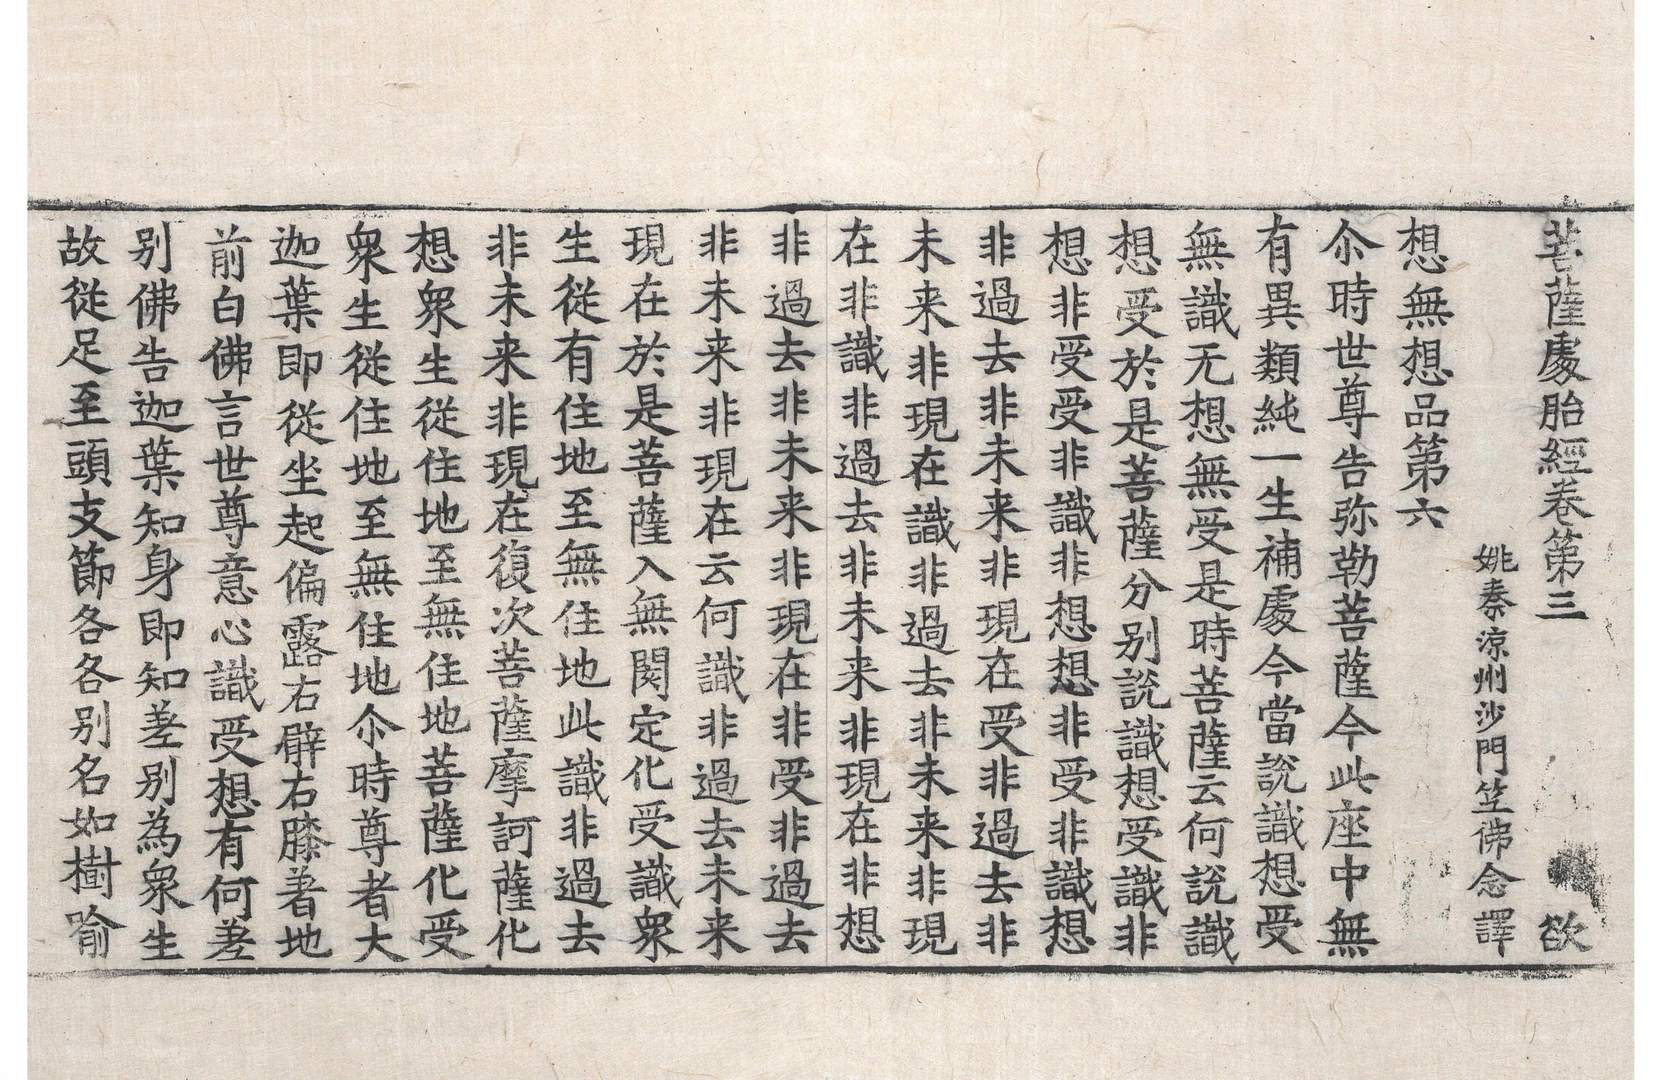 菩薩處胎經卷第三 欲
姚秦涼州沙門竺佛念譯
想無想品第六
尒時世尊告弥勒菩薩今此座中無
有異類純一生補處今當說識想受
無識无想無受是時菩薩云何說識
想受於是菩薩分別說識想受識非
想非受受非識非想想非受非識想
非過去非未来非現在受非過去非
未来非現在識非過去非未来非現
在非識非過去非未来非現在非想
非過去非未来非現在非受非過去
非未来非現在云何識非過去未来
現在於是菩薩入無閡定化受識衆
生從有住地至無住地此識非過去
非未来非現在復次菩薩摩訶薩化
想衆生從住地至無住地菩薩化受
衆生從住地至無住地尒時尊者大
迦葉即從坐起偏露右臂右膝著地
前白佛言世尊意心識受想有何差
別佛告迦葉知身即知差別為衆生
故從足至頭支節各各別名如樹喻